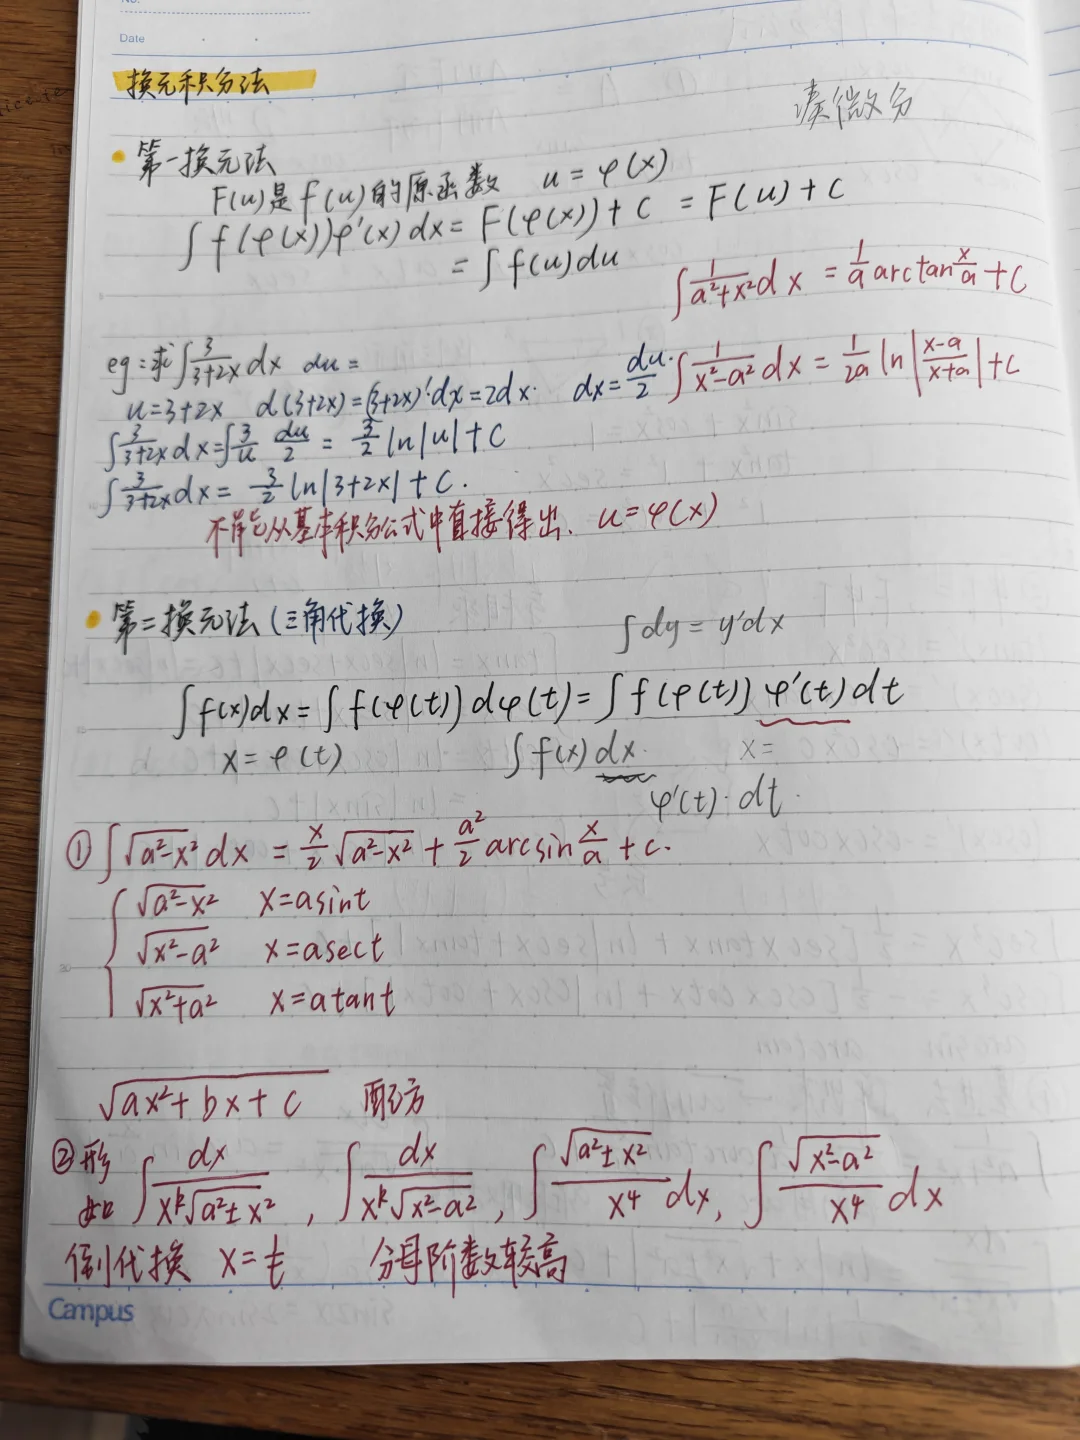 No.
Date
换元积分法
凑微分
第一换元法
F(u)是f(u)的原函数 u=φ(x)
∫f(φ(x))φ'(x)dx=F(φ(x))+C =F(u)+C
=∫f(u)du
∫1/(a²+x²)dx = 1/a arctan x/a +C
eg:求∫3/(3+2x)dx du=
u=3+2x d(3+2x)=(3+2x)'dx=2dx. dx=du/2
∫1/(x²-a²)dx = 1/2a ln|(x-a)/(x+a)|+C
∫3/(3+2x)dx=∫3/u du/2 = 3/2 ln|u|+C
∫3/(3+2x)dx= 3/2 ln|3+2x|+C.
不能从基本积分公式中直接得出. u=φ(x)
第二换元法(三角代换)
∫dy=y'dx
∫f(x)dx=∫f(φ(t))dφ(t)=∫f(φ(t))φ'(t)dt
x=φ(t) ∫f(x)dx. x=
φ'(t)·dt
①∫√(a²-x²)dx = x/2 √(a²-x²) + a²/2 arcsin x/a +C.
√(a²-x²) x=asint
√(x²-a²) x=asect
√(x²+a²) x=atant
√(ax²+bx+c) 配方
②形如 ∫dx/(x^k√(a²±x²)), ∫dx/(x^k√(x²-a²)), ∫√(a²±x²)/x⁴ dx, ∫√(x²-a²)/x⁴ dx
倒代换 分母阶数较高
Campus